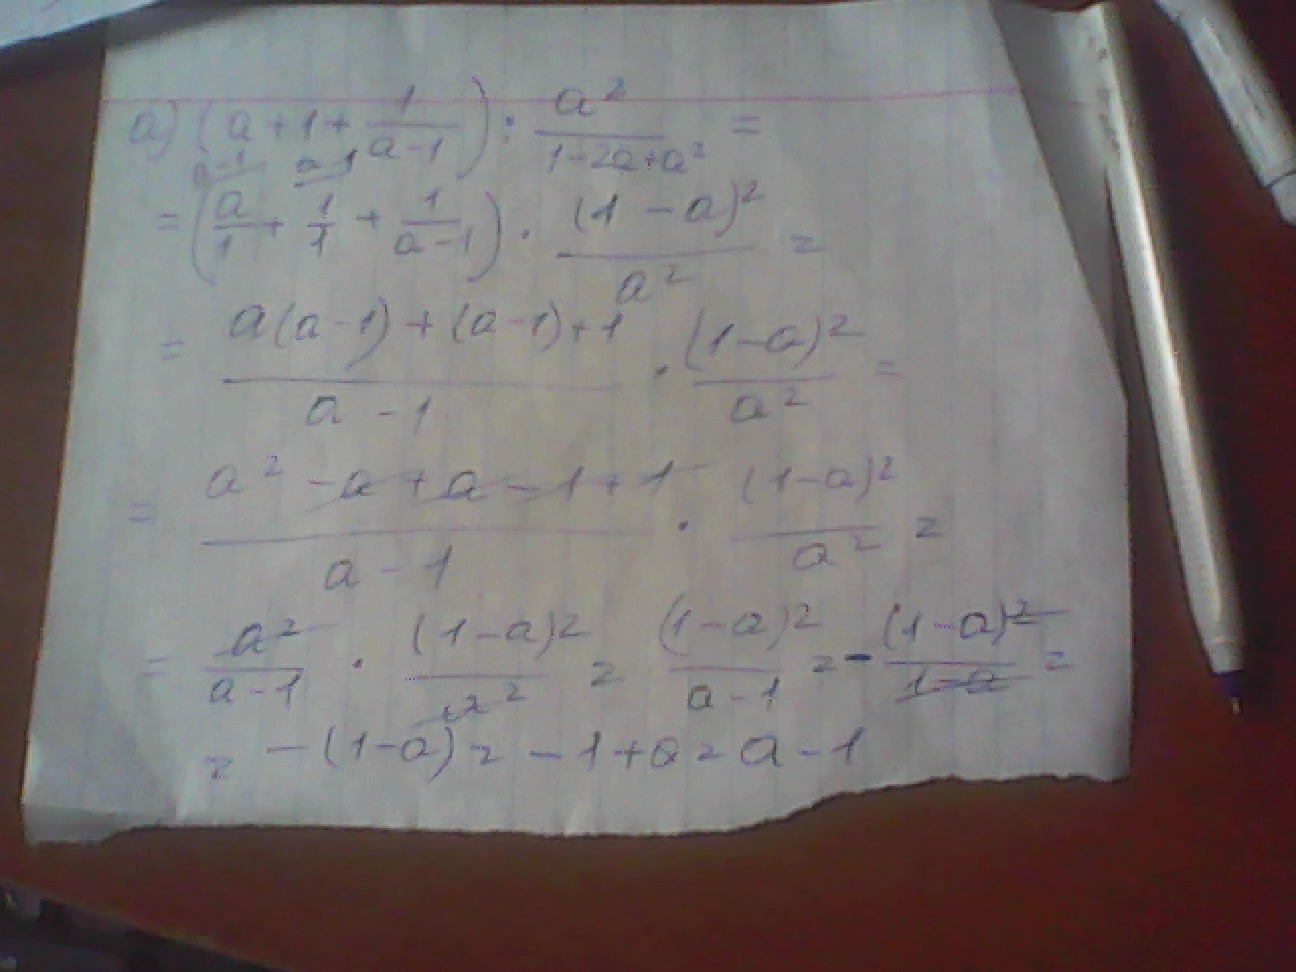 a) (a + 1 + 1/(a-1)) : a²/(1-2a+a²) =
= (a/1 + 1/1 + 1/(a-1)) · (1-a)²/a² =
= (a(a-1) + (a-1) + 1)/(a-1) · (1-a)²/a² =
= (a² - a + a - 1 + 1)/(a-1) · (1-a)²/a² =
= a²/(a-1) · (1-a)²/a² = (1-a)²/(a-1) = -(1-a)²/(1-a) =
= -(1-a) = -1+a = a-1